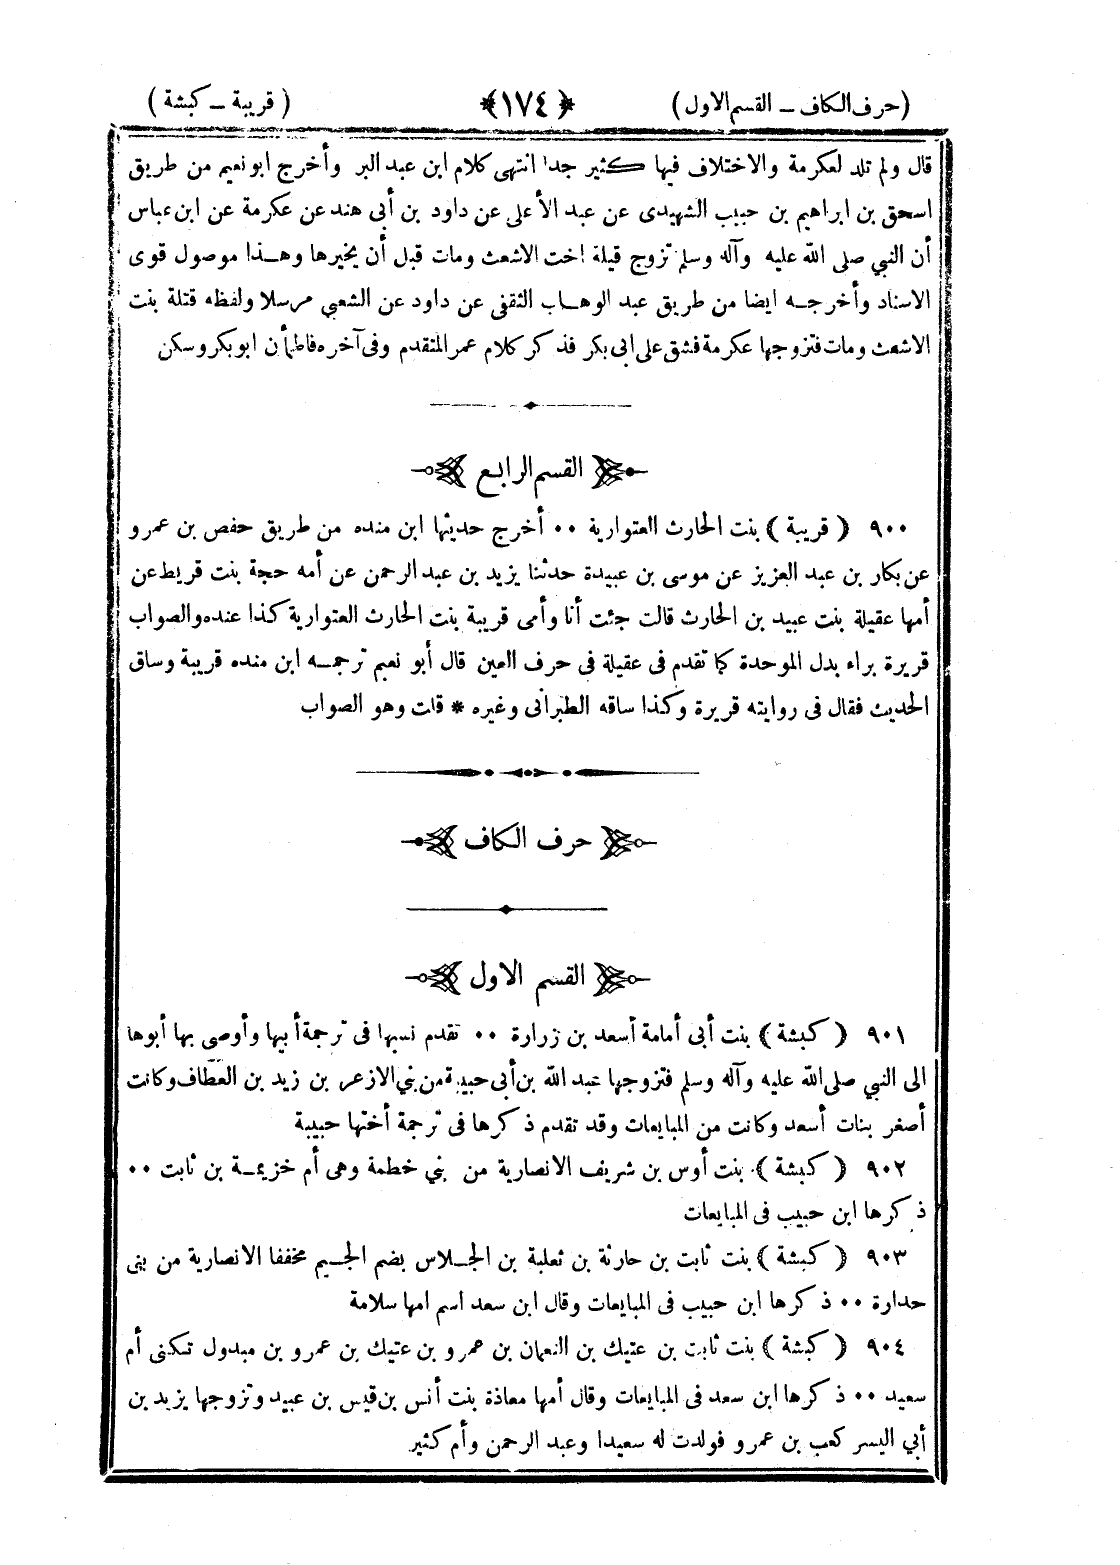 (حرف الكاف – القسم الاول) ﴿١٧٤﴾ (قريبة – كبشة)
قال ولم تلد لعكرمة والاختلاف فيها كثير جدا انتهى كلام ابن عبد البر وأخرج ابو نعيم من طريق
اسحق بن ابراهيم بن حبيب الشهيدى عن عبد الأعلى عن داود بن أبى هند عن عكرمة عن ابن عباس
أن النبي صلى الله عليه وآله وسلم تزوج قيلة اخت الاشعث ومات قبل أن يخيرها وهذا موصول قوى
الاسناد وأخرجه ايضا من طريق عبد الوهاب الثقفى عن داود عن الشعبي مرسلا ولفظه قتلة بنت
الاشعث ومات فتزوجها عكرمة فشق على ابى بكر فذكر كلام عمر المتقدم وفى آخره فاطمأن ابو بكر وسكن
القسم الرابع
٩٠٠ ( قريبة ) بنت الحارث العتوارية ٠٠ أخرج حديثها ابن منده من طريق حفص بن عمرو
عن بكار بن عبد العزيز عن موسى بن عبيدة حدثنا يزيد بن عبد الرحمن عن أمه حجة بنت قريط عن
أمها عقيلة بنت عبيد بن الحارث قالت جئت أنا وأمى قريبة بنت الحارث العتوارية كذا عنده والصواب
قريرة براء بدل الموحدة كما تقدم فى عقيلة فى حرف العين قال أبو نعيم ترجمه ابن منده قريبة وساق
الحديث فقال فى روايته قريرة وكذا ساقه الطبرانى وغيره * قلت وهو الصواب
حرف الكاف
القسم الاول
٩٠١ ( كبشة ) بنت أبى أمامة أسعد بن زرارة ٠٠ تقدم نسبها فى ترجمة أبيها وأوصى بها أبوها
الى النبي صلى الله عليه وآله وسلم فتزوجها عبد الله بن أبى حبيبة من بني الازعر بن زيد بن العطاف وكانت
أصغر بنات أسعد وكانت من المبايعات وقد تقدم ذكرها فى ترجمة أختها حبيبة
٩٠٢ ( كبشة ) بنت أوس بن شريف الانصارية من بني خطمة وهى أم خزيمة بن ثابت ٠٠
ذكرها ابن حبيب فى المبايعات
٩٠٣ ( كبشة ) بنت ثابت بن حارثة بن ثعلبة بن الجلاس بضم الجيم مخففا الانصارية من بنى
حدارة ٠٠ ذكرها ابن حبيب فى المبايعات وقال ابن سعد اسم امها سلامة
٩٠٤ ( كبشة ) بنت ثابت بن عتيك بن النعمان بن عمرو بن عتيك بن عمرو بن مبدول تكنى أم
سعيد ٠٠ ذكرها ابن سعد فى المبايعات وقال أمها معاذة بنت أنس بن قيس بن عبيد وتزوجها يزيد بن
أبي اليسر كعب بن عمرو فولدت له سعيدا وعبد الرحمن وأم كثير